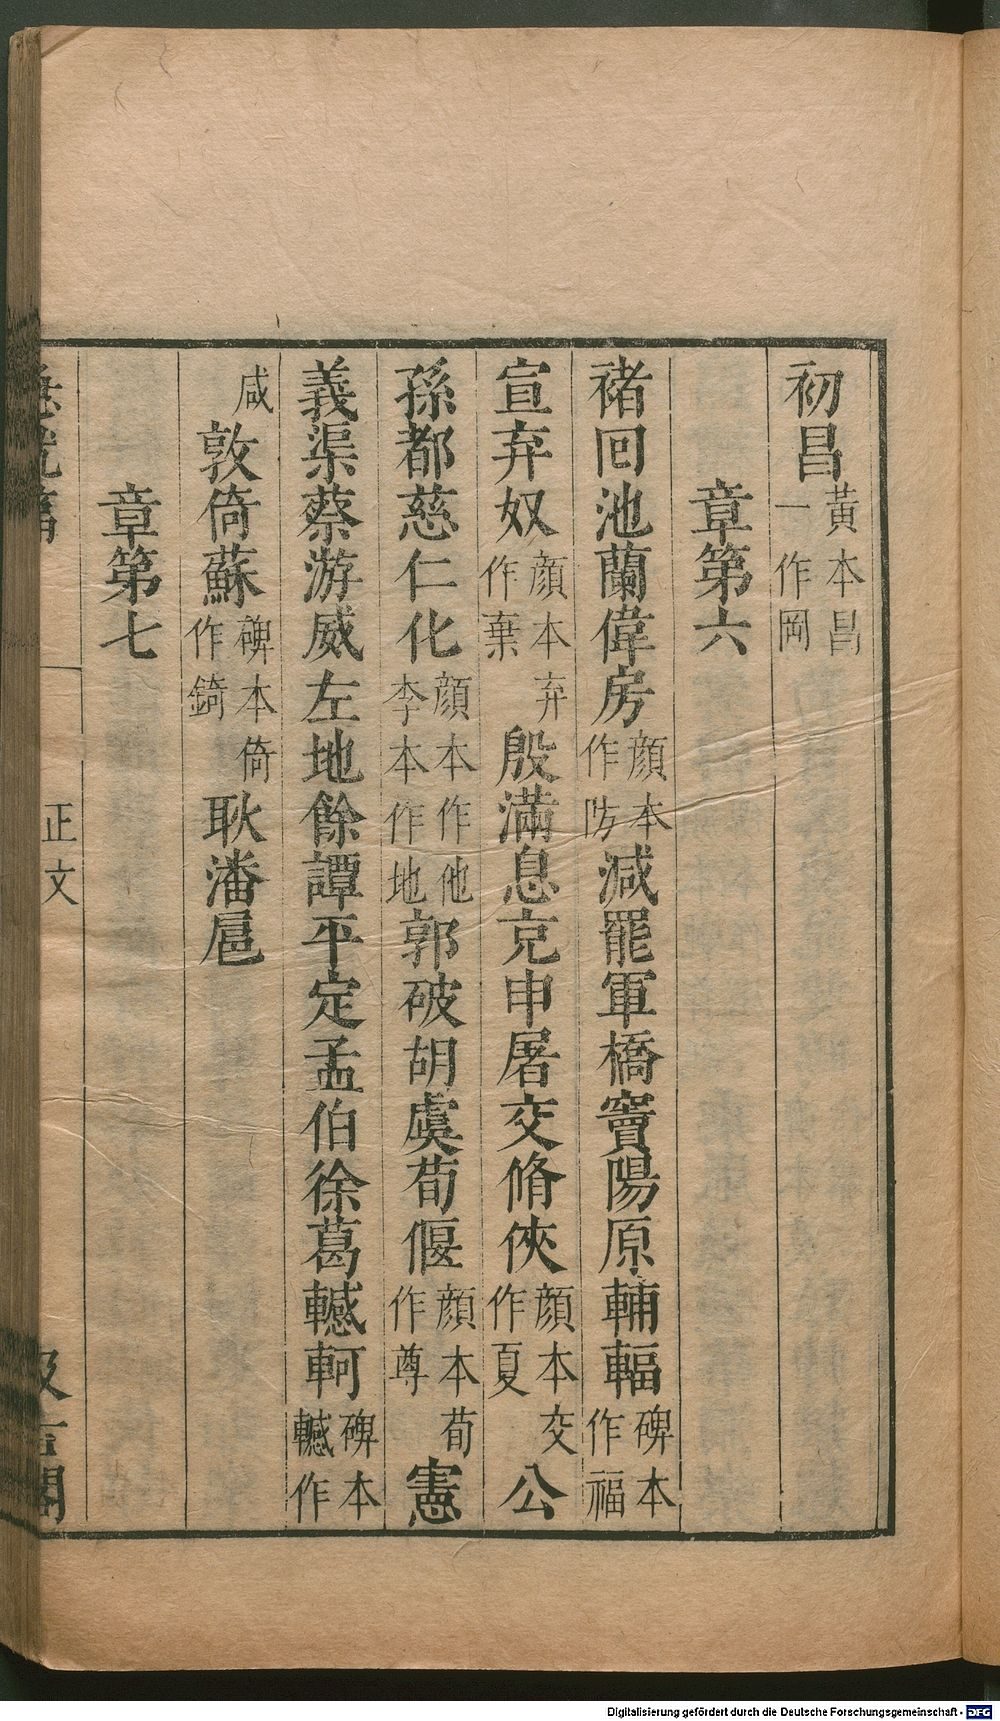 初昌黃本昌一作岡
章第六
褚回池蘭偉房顏本作防減罷軍橋竇陽原輔輻碑本作福
宣弃奴顏本弃作棄殷滿息充申屠交脩俠顏本交作夏公
孫都慈仁化顏本作他李本作地郭破胡虞荀偃顏本荀作尊憲
義渠蔡游威左地餘譚平定孟伯徐葛轗軻碑本轗作
咸敦倚蘇碑本倚作錡耿潘扈
章第七
急就篇 正文 汲古閣
Digitalisierung gefördert durch die Deutsche Forschungsgemeinschaft - DFG